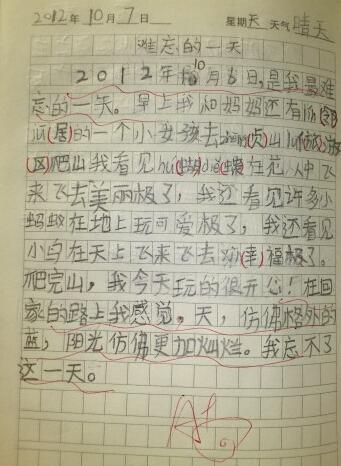 2012年10月7日 星期天 天气晴天
难忘的一天
2012年10月6日,是我最难
忘的一天。早上我和妈妈还有lín(邻)
jū(居)的一个小女孩去(虎)山
(区)爬山我看见hú(蝴)dié(蝶)在花从中飞
来飞去美丽极了,我还看见许多小
蚂蚁在地上玩可爱极了,我还看见
小鸟在天上飞来飞去(幸)福极了。
爬完山,我今天玩的很开心!在回
家的路上我感觉。天,仿佛格外的
蓝,阳光仿佛更加灿烂。我忘不了
这一天。